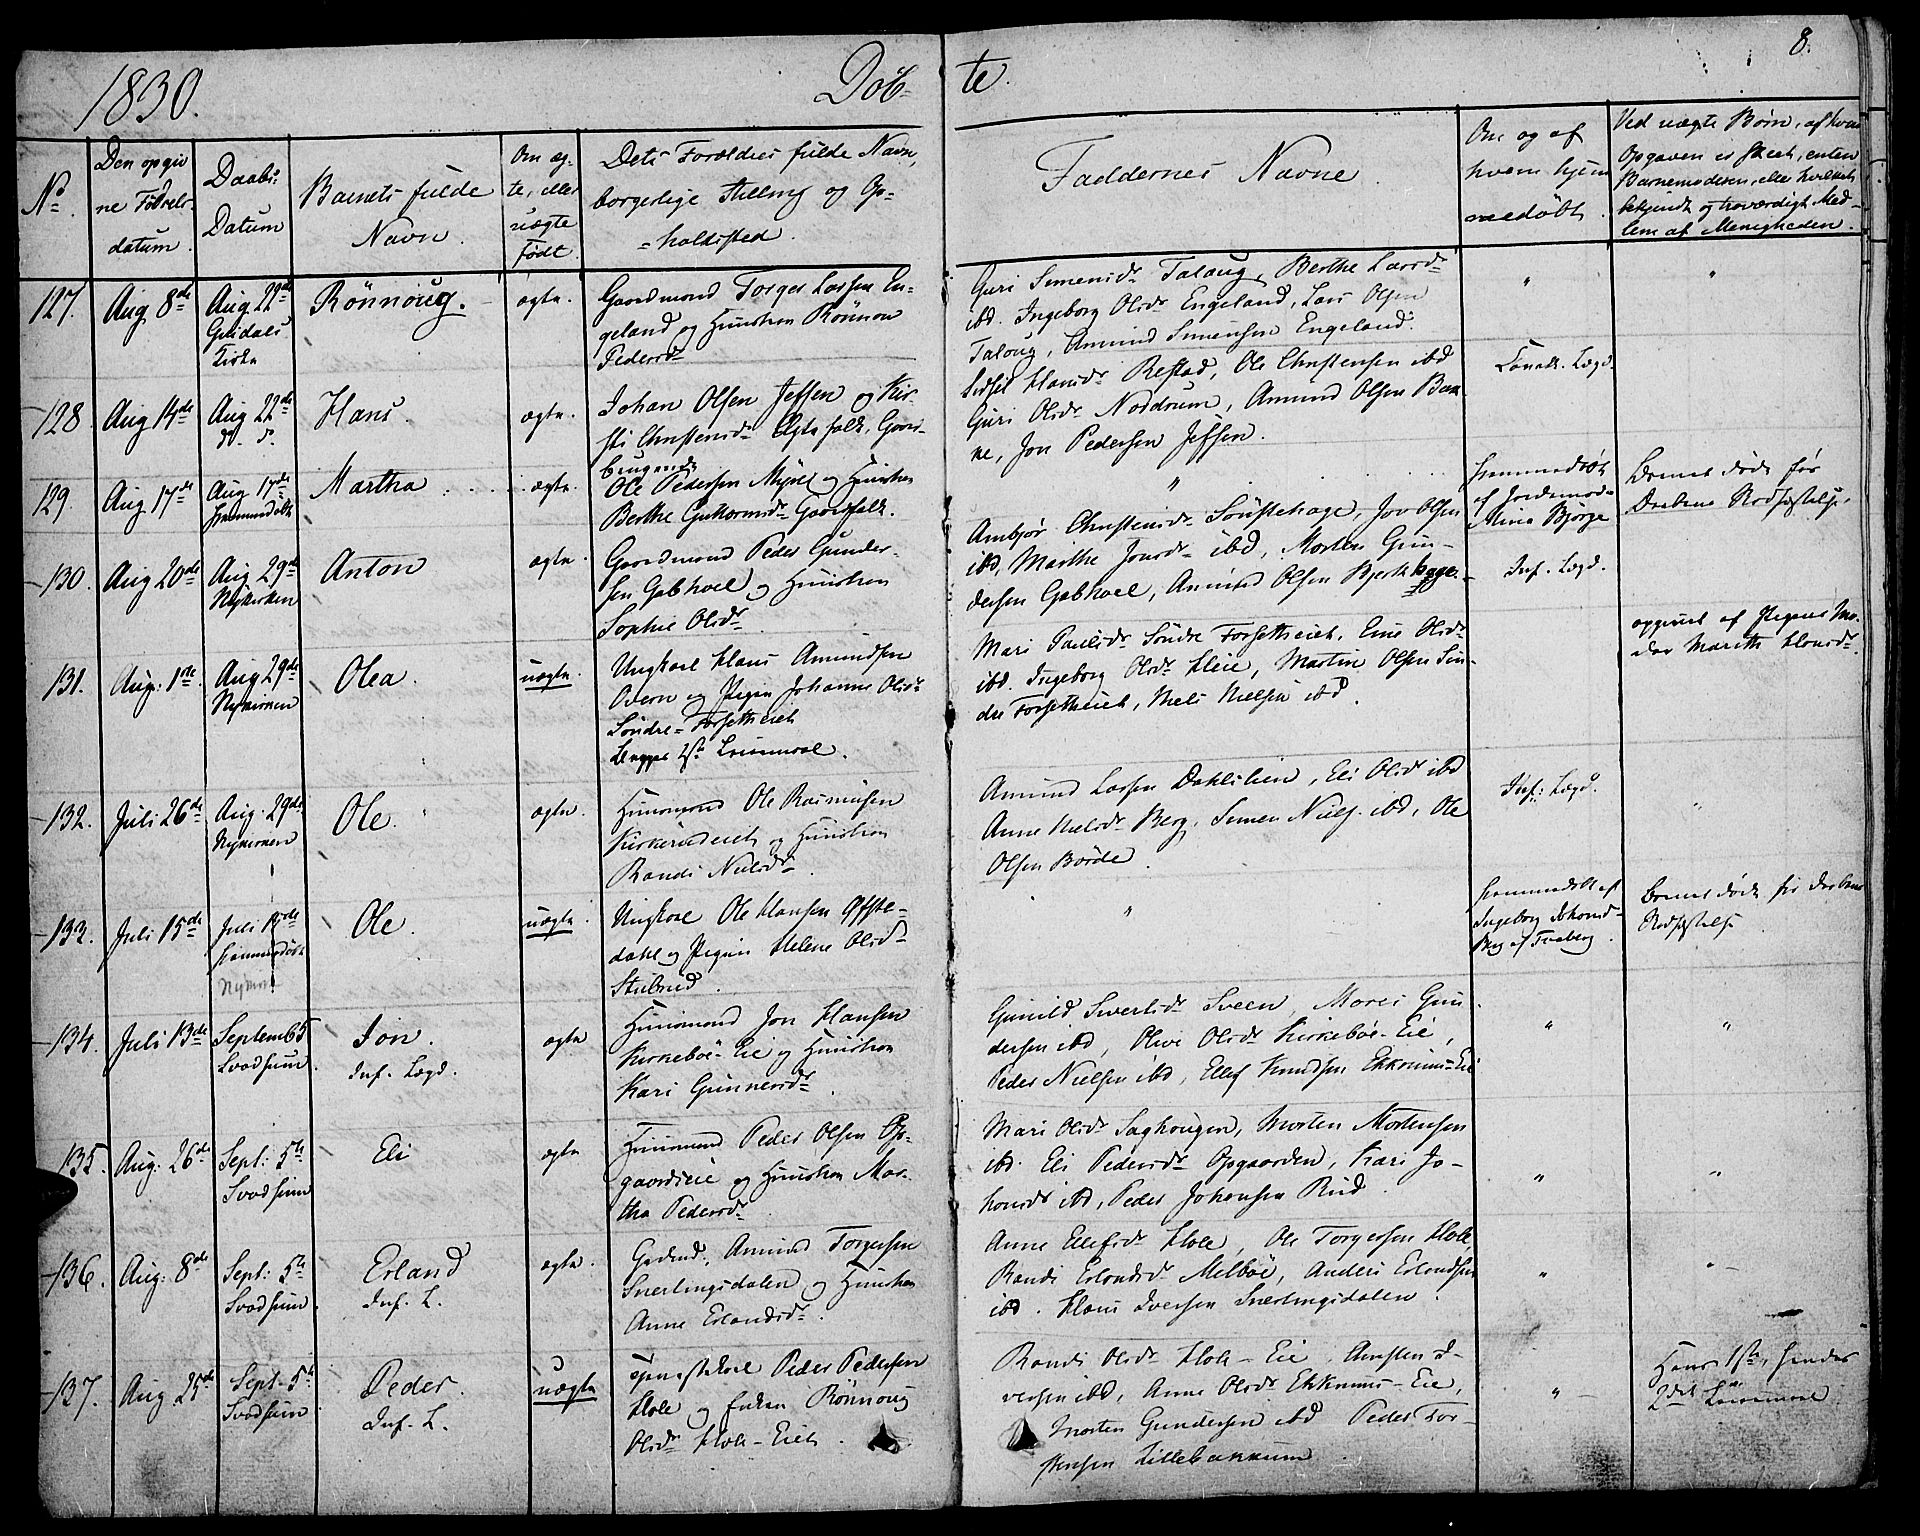 1830.
Döb-
te.
8.
No.
Den opgiv
ne Födsels-
datum.
Daabs-
Datum
Barnets fulde
Navn.
Om æg-
te, eller
uægte
födt.
Dets Forældres fulde Navn,
borgerlige Stilling og Op-
=holdssted.
Faddernes Navne.
Om og af
hvem hjem
medöbt.
Ved uægte Börn, af hvem
Opgaven er skeet, enten
Barnemoderen, eller hvilket
bekjendt og troværdigt Med-
lem af Menigheden.
127.
Aug 8de
Aug. 22de
Gusdals
Kirke
Rönnoug.
ægte.
Gaardmand Torger Larsen En-
geland og Hustru Rönnou
Pedersdr
Guri Simensdr Taloug, Berthe Larsdr
ibd. Ingeborg Olsdr Engeland, Lars Olsen
Taloug, Amund Simensen Engeland.
"
"
128
Aug 14de
Aug 22de
d. d.
Hans.
ægte.
Johan Olsen Jessen og Kir-
sti Christensdr Ægtefolk, Gaard-
brugende
Sidsel Hansdr Restad, Ole Christensen ibd
Guri Olsdr Noddrum, Amund Olsen Bak-
ke, Jon Pedersen Jessen.
Lægd.
129.
Aug 17de
Aug 17de
hjemmedöbt
Martha
ægte.
Ole Pedersen Myre og Hustru
Berthe Guttormsdr Gaardfolk.
"
hjemmedöbt
af Jordemod-
Mina Björge
Barnet döde för
Daabens Stadfæstelse.
130.
Aug 20de
Aug. 29de
Nykirken
Anton
ægte.
Gaardmand Peder Gunder-
sen Gabhoel og Hustru
Sophie Olsdr
Ambjör Christensdr Sönstehage, Jon Olsen
ibd, Marthe Jonsdr ibd, Morten Gun-
dersen Gabhoel, Amund Olsen Bjerkhage.
Inf. Lægd.
131.
Aug: 1ste.
Aug 29de
Nykirken
Olea.
uægte.
Ungkarl Hans Amundsen
Overn og Pigen Johanne Olsdr
Söndre-Forsetheiet
Begges 1ste Leiermaal.
Mari Paulsdr Söndre Forsetheiet, Eine Olsdr
ibd. Ingeborg Olsdr Heie, Martin Olsen Sön-
dre Forsetheiet, Niels Nielsen ibd.
opgivet af Pigens Mo-
der Marith Hansdr.
132.
Juli 26de
Aug. 29de
Nykirken
Ole.
ægte.
Huusmand Ole Rasmusen
Kirkerudeiet og Hustru
Randi Nielsdr.
Amund Larsen Dahlslien, Eli Olsdr ibd
Anne Nielsdr Berg, Simen Niels. ibd, Ole
Olsen Börde.
Inf: Lægd.
"
133.
Juli 15de
Juli 19de
hjemmedöbt
Nykirk
Ole.
uægte.
Ungkarl Ole Hansen Offste-
dahl og Pigen Helene Olsdr
Stubrud.
"
hjemmedöbt af
Ingeborg Johansd-
Berg af Faaberg.
Barnet döde för Daabens
Stadfæstelse
134.
Juli 13de
Septemb 5
Svadsum.
Jon.
Inf. Lægd.
ægte
Huusmand Jon Hansen
Kirkeböe-Eie og Hustru
Kari Gunnersdr.
Gunild Sivertsdr Sveen, Mores Gun-
dersen ibd, Olive Olsdr Kirkeböe-Eie,
Peder Nielsen ibd, Ellef Knudsen Ekknuus-Eie
"
"
135.
Aug: 26de
Sept: 5te
Svadsum
Eli
ægte
Huusmand Peder Olsen Op-
gaardseie og Hustru Mar-
tha Pedersdr.
Mari Olsdr Saghougen, Morten Mortensen
ibd. Eli Pedersdr Opgaarden, Kari Jo-
hansdr ibd, Peder Johansen Rud.
"
"
136.
Aug: 8de
Sept: 5te
Svadsum.
Erland
Inf. L.
ægte.
Gdmd. Amund Torgersen
Snerlingsdalen og Hustru
Anne Erlandsdr.
Anne Ellefsdr Hole, Ole Torgersen Hole,
Randi Erlandsdr Melböe, Anders Erlandsen
ibd. Hans Iversen Snerlingsdalen.
"
"
137.
Aug 25de
Sept. 5te
Svadsum
Peder.
Inf. L.
uægte
Tjenestekarl Peder Pedersen
Hole og Enken Rönnoug
Olsdr Hole-Eiet.
Randi Olsdr Hole-Eie, Amsten I-
versen ibd, Anne Olsdr Ekknuus-Eie,
Morten Gundersen ibd Peder Tor-
stensen Lillebakkum.
"
Hans 1ste, hendes
2det Leiermaal